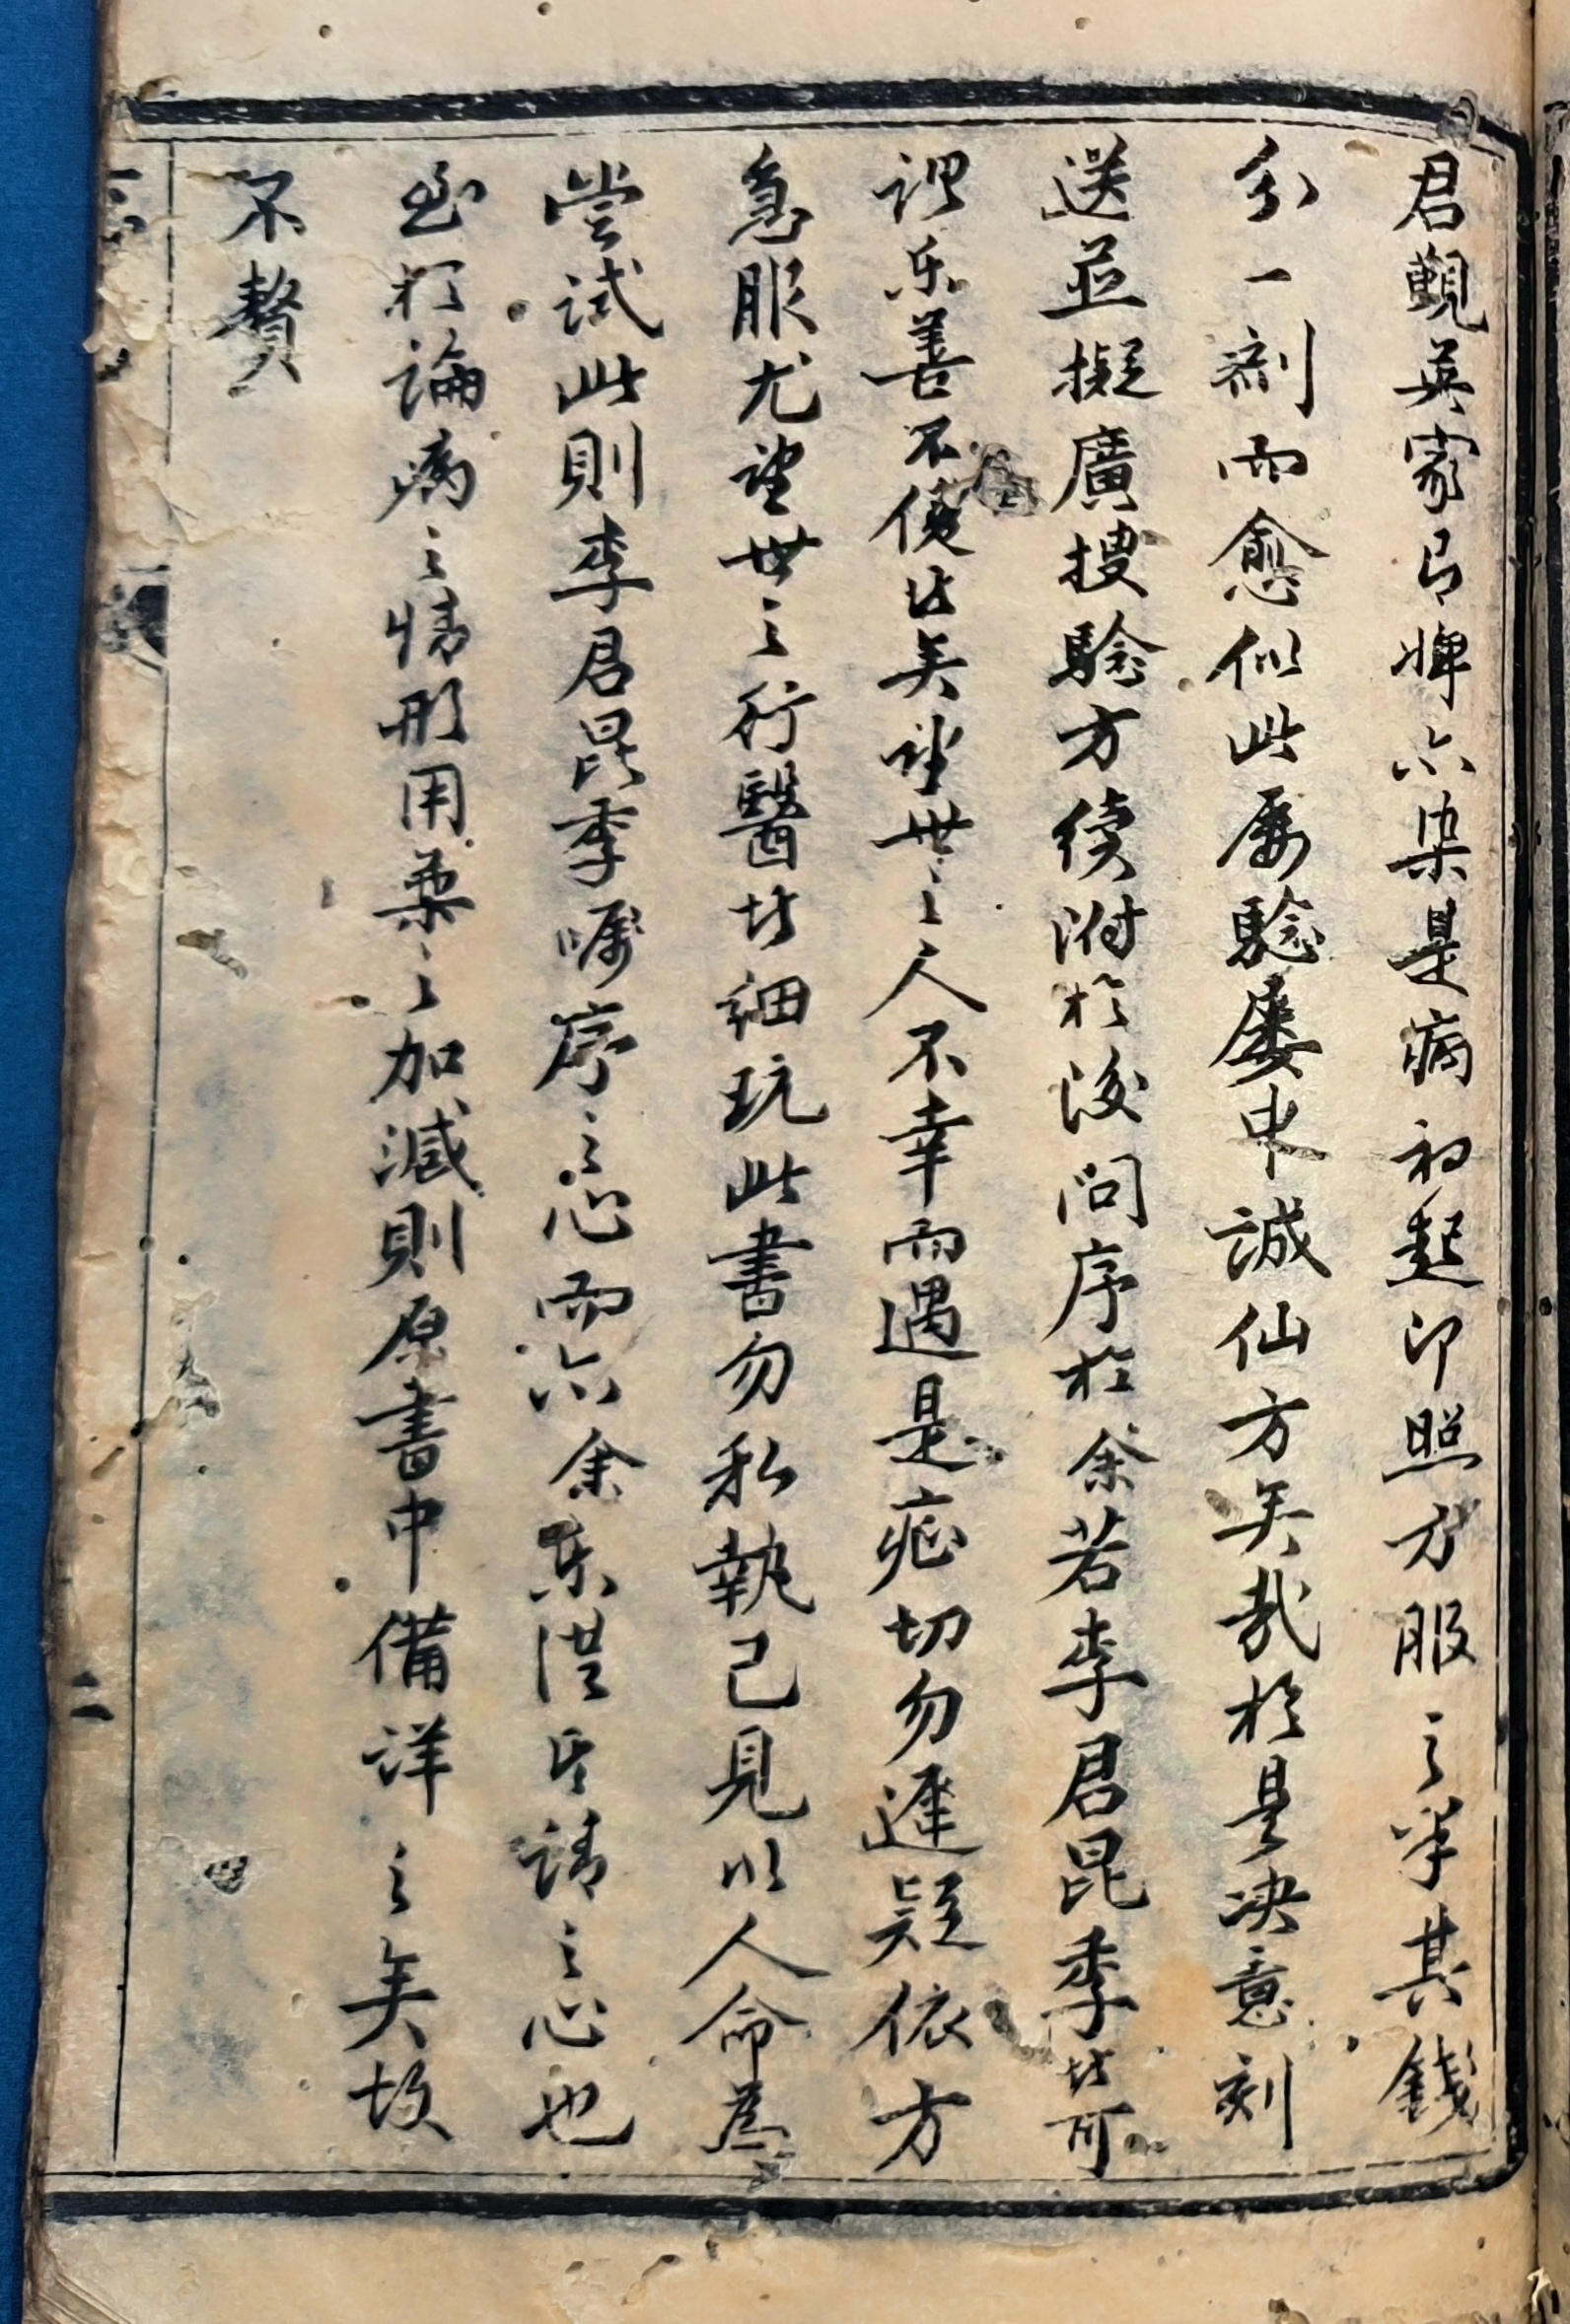 君觀英家弓婢六染是病初起即照方服之半其錢
分一劑而愈似此屢驗屢中誠仙方矣哉於是决意刻
送並擬廣搜驗方續附於後問序於余若李君昆季皆可
謂乐善不倦者矣望世之人不幸而遇是症切勿遲疑依方
急服尤望世之行醫者細玩此書勿私執己見以人命為
嘗試此則李君昆季囑序之心而亦余樂從所請之心也
至於論病之情形用藥之加減則原書中備詳之矣故
不贅
二